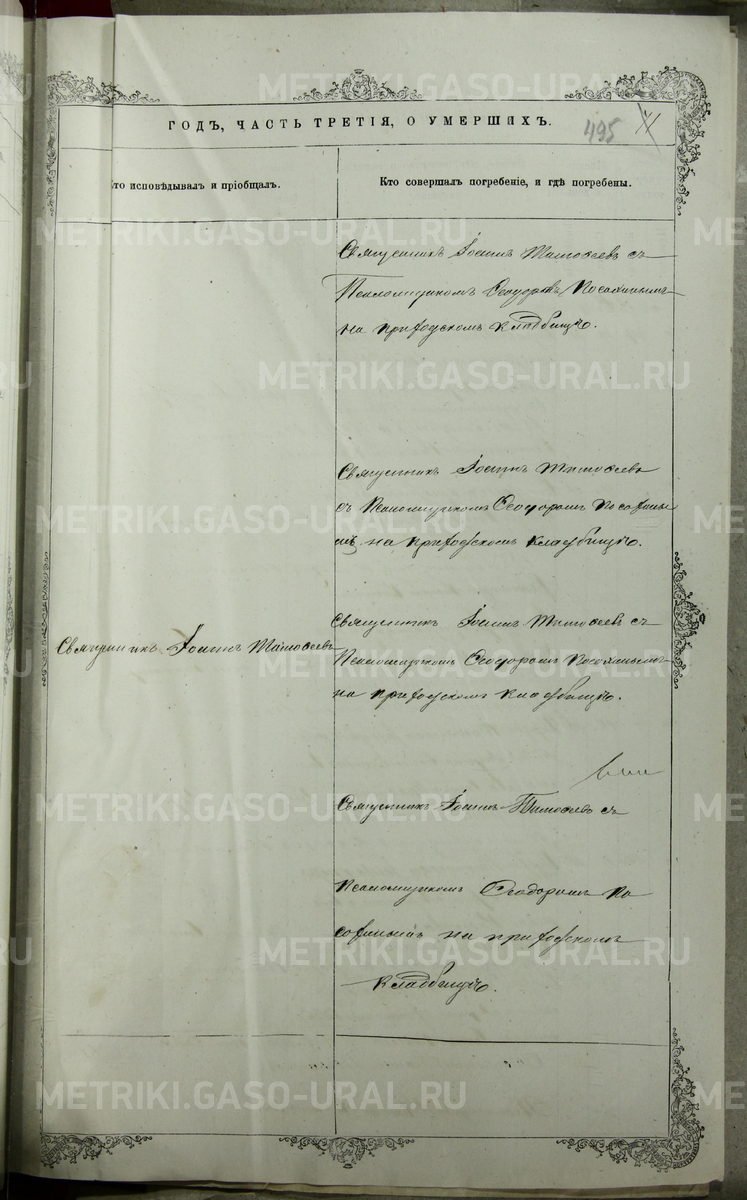 ГОДЪ, ЧАСТЬ ТРЕТІЯ, О УМЕРШИХЪ.
495
то исповѣдывалъ и пріобщалъ.
Кто совершалъ погребеніе, и гдѣ погребены.
Священникъ Іоаннъ Тимофеевъ съ
Псаломщикомъ Ѳеодоромъ Посохинымъ
на приходскомъ кладбищѣ.
Священникъ Іоаннъ Тимофеевъ
съ Псаломщикомъ Ѳеодоромъ Посохины
мъ на приходскомъ кладбищѣ.
Священникъ Іоаннъ Тимофеевъ
Священникъ Іоаннъ Тимофеевъ съ
Псаломщикомъ Ѳеодоромъ Посохинымъ
на приходскомъ кладбищѣ.
Священникъ Іоаннъ Тимофеевъ съ
псаломщикомъ Ѳеодоромъ По
сохинымъ на приходскомъ
кладбищѣ.
METRIKI.GASO-URAL.RU